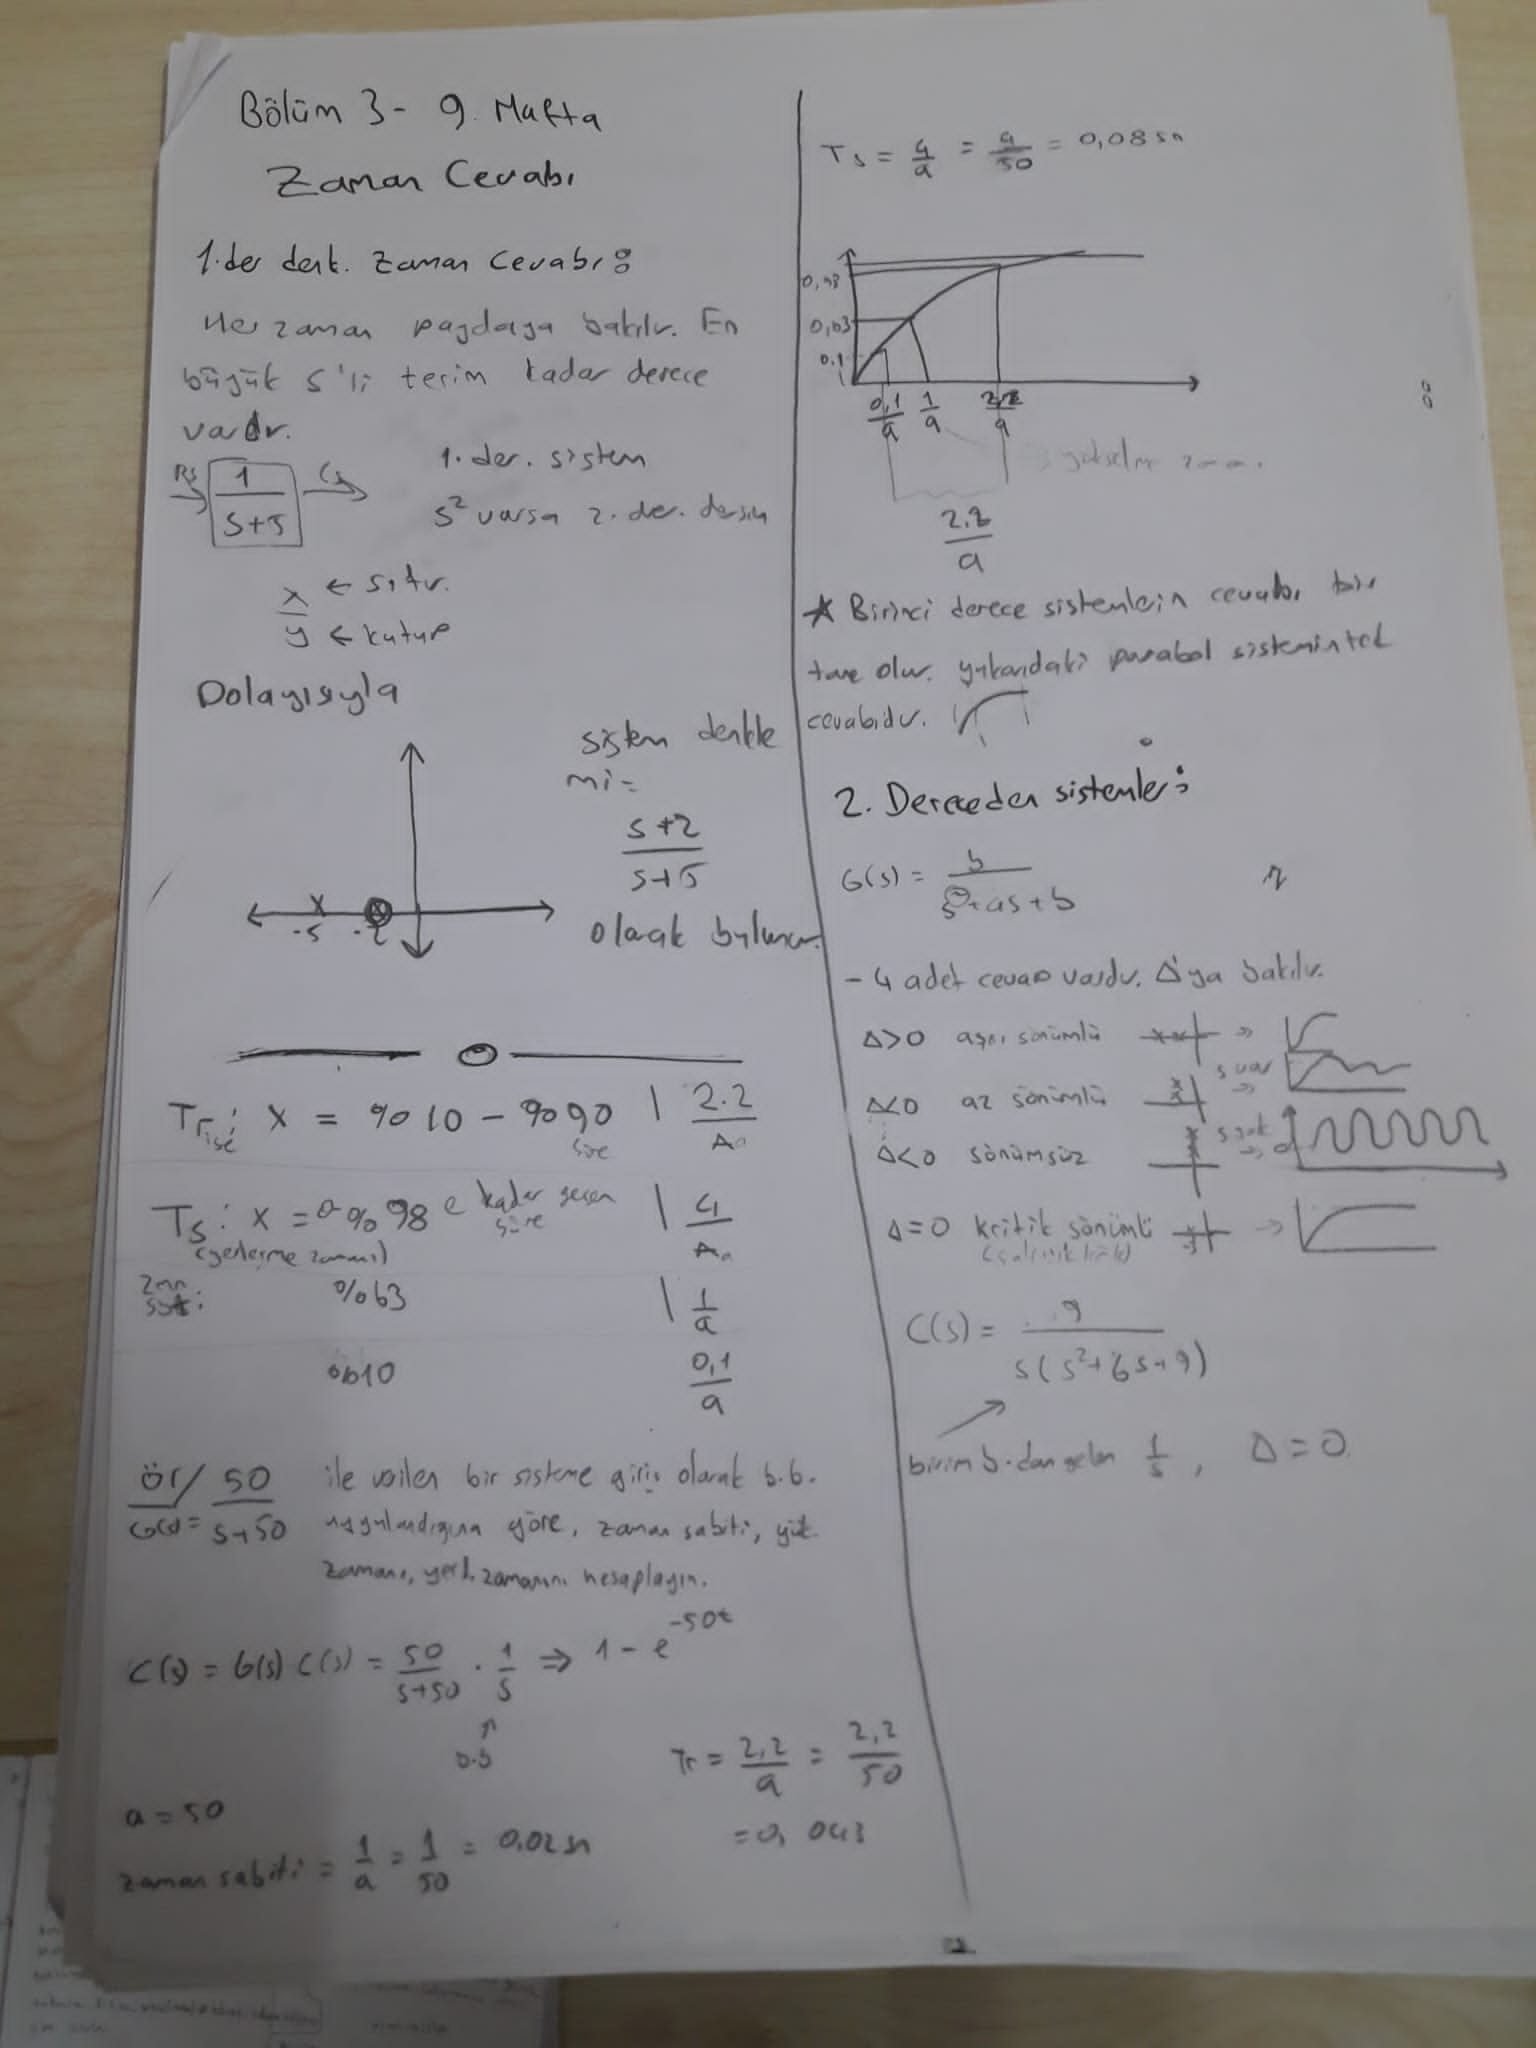 Bölüm 3 - 9. Hafta
Zaman Cevabı
1. der denk. Zaman Cevabı:
Her zaman paydaya bakılır. En
büyük s'li terim kadar derece
vardır.
Rs 1/(s+5) Cs
1. der. sistem
s² varsa 2. der. dersin
x ← sıfır.
y ← kutup
Dolayısıyla
sistem denkle
mi =
(s+2)/(s+5)
olarak bulunur.
-5 -2
Trise: x = %10 - %90 süre | 2.2/a
Ts: x = 0-%98 e kadar geçen süre | 4/a
(yerleşme zamanı)
Zmn sbt: %63 | 1/a
%10 0,1/a
ör/ G(s) = 50/(s+50) ile verilen bir sisteme giriş olarak b.b.
uygulandığına göre, zaman sabiti, yük.
zamanı, yerl. zamanını hesaplayın.
C(s) = G(s) C(s) = 50/(s+50) . 1/s ⇒ 1 - e^-50t
↑
b.b
a = 50
zaman sabiti = 1/a = 1/50 = 0,02 sn
Tr = 2,2/a = 2,2/50
= 0,043
Ts = 4/a = 4/50 = 0,08 sn
0,98
0,63
0.1
0,1/a 1/a
yükselme
2.2/a
★ Birinci derece sistemlerin cevabı bir
tane olur. yukarıdaki parabol sistemin tek
cevabıdır.
2. Dereceden sistemler:
G(s) = b/(s²+as+b)
- 4 adet cevap vardır. Δ'ya bakılır.
Δ>0 aşırı sönümlü ⇒
Δ<0 az sönümlü s var ⇒
Δ<0 sönümsüz s yok ⇒
Δ=0 kritik sönümlü →
C(s) = 9/(s(s²+6s+9))
birim b.dan gelen 1/s, Δ=0